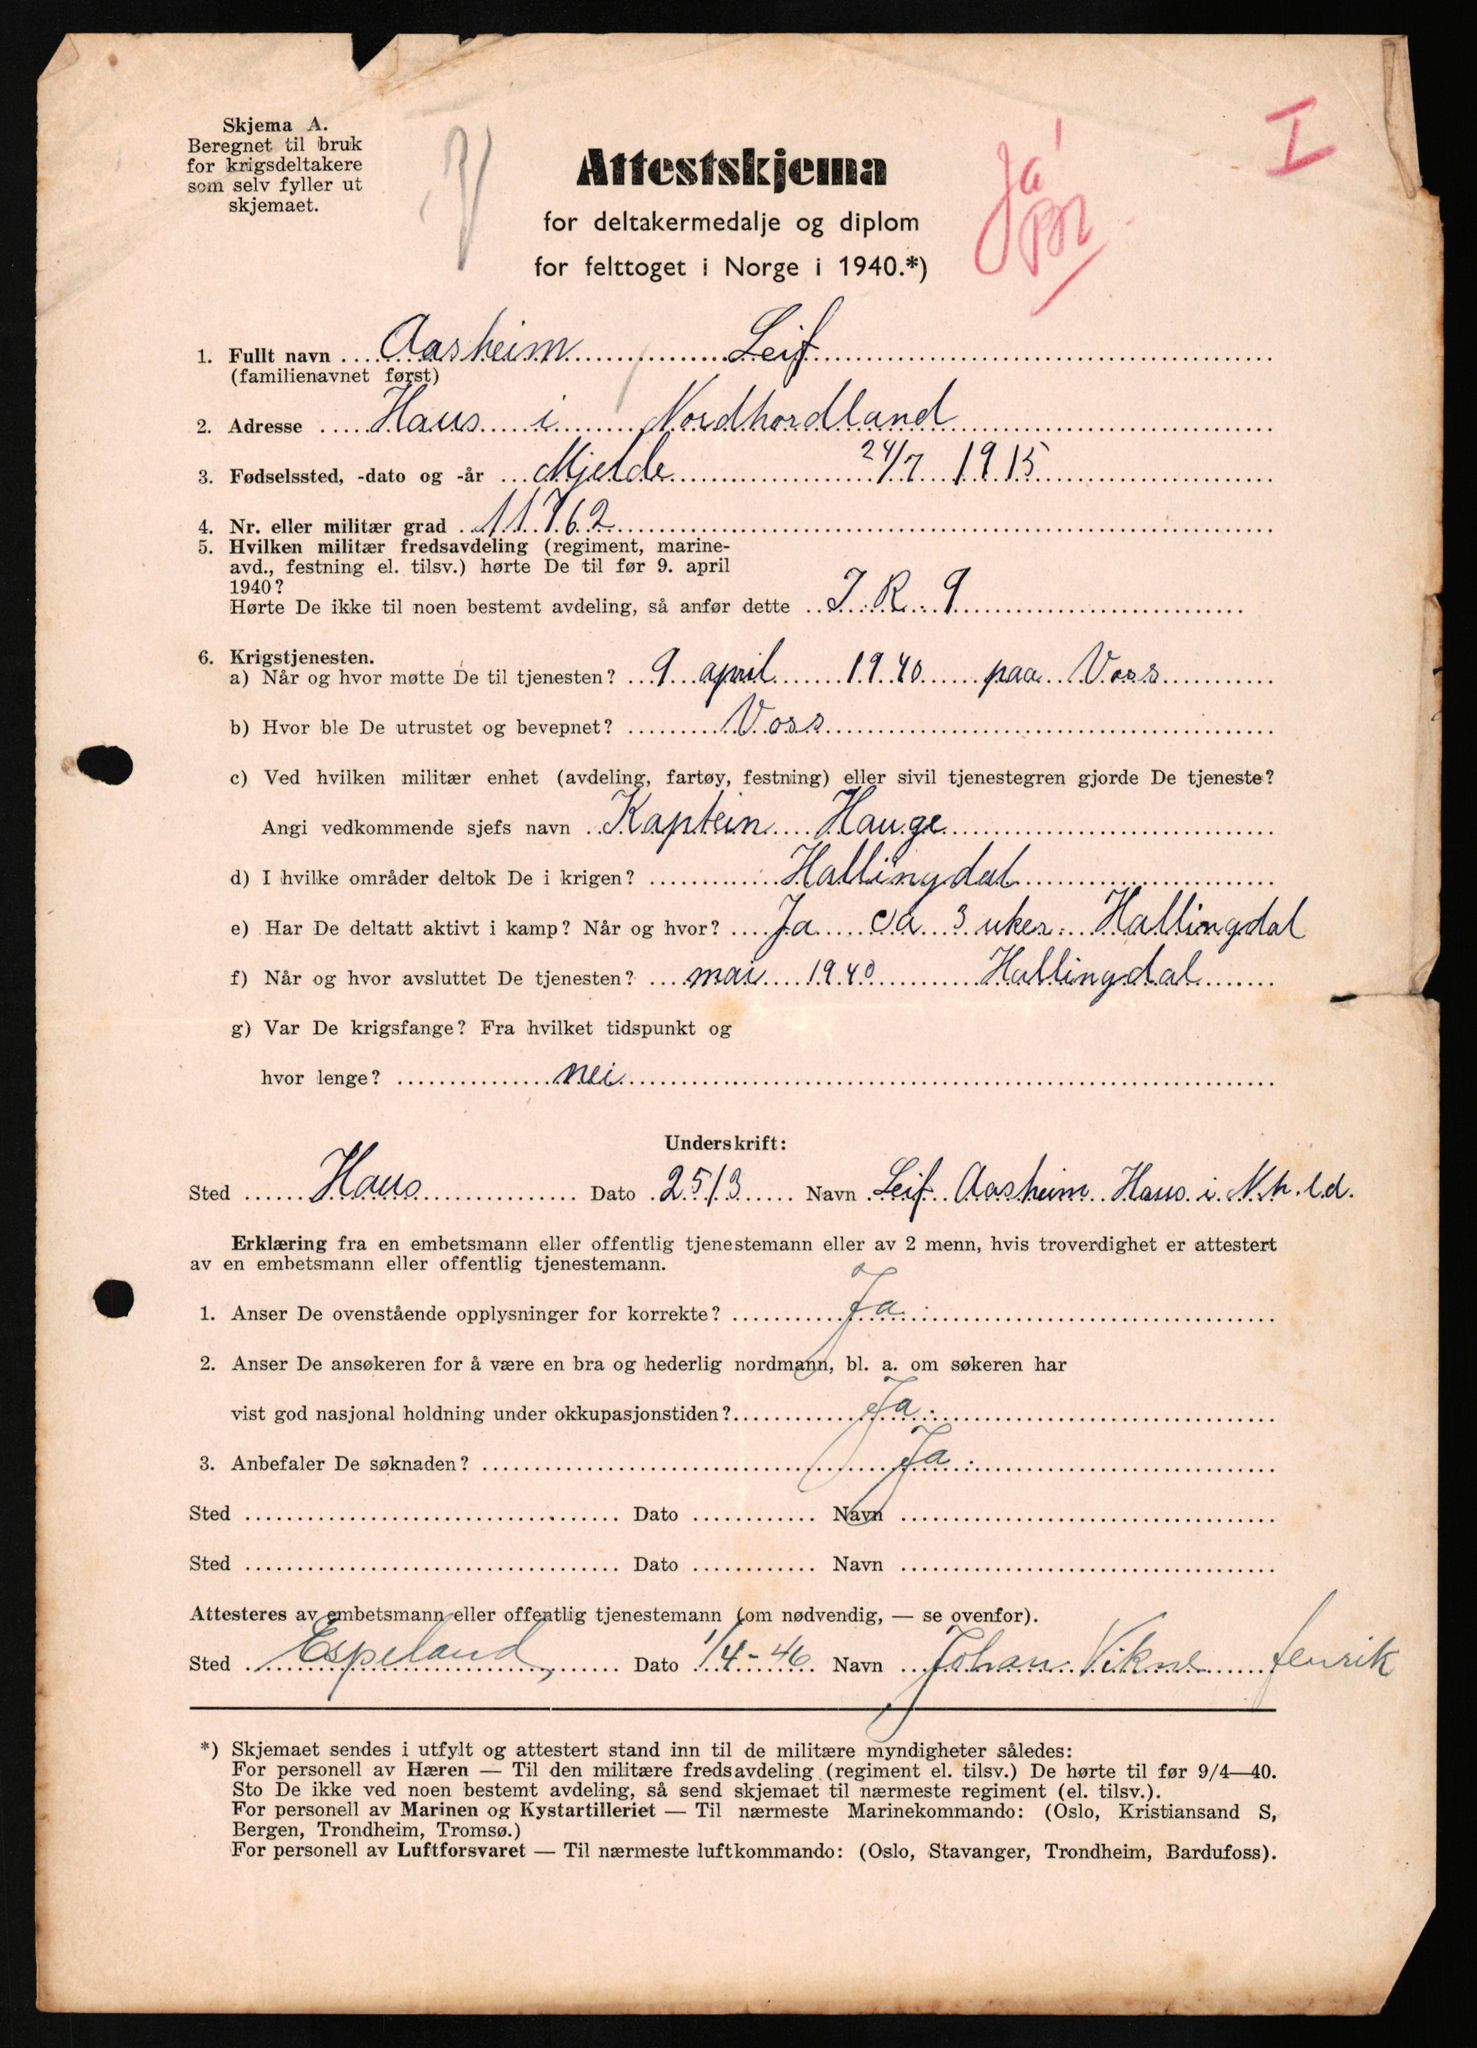 Skjema A.
Beregnet til bruk
for krigsdeltakere
som selv fyller ut
skjemaet.
I
Ja
Attestskjema
for deltakermedalje og diplom
for felttoget i Norge i 1940.*)
1. Fullt navn Aasheim Leif
(familienavnet først)
2. Adresse Haus i Nordhordland
3. Fødselssted, -dato og -år Mjelde 24/7 1915
4. Nr. eller militær grad 11762
5. Hvilken militær fredsavdeling (regiment, marine-
avd., festning el. tilsv.) hørte De til før 9. april
1940?
Hørte De ikke til noen bestemt avdeling, så anfør dette J. R. 9
6. Krigstjenesten.
a) Når og hvor møtte De til tjenesten? 9 april 1940 paa Voss
b) Hvor ble De utrustet og bevepnet? Voss
c) Ved hvilken militær enhet (avdeling, fartøy, festning) eller sivil tjenestegren gjorde De tjeneste?
Angi vedkommende sjefs navn Kaptein Hauge
d) I hvilke områder deltok De i krigen? Hallingdal
e) Har De deltatt aktivt i kamp? Når og hvor? Ja ca 3 uker Hallingdal
f) Når og hvor avsluttet De tjenesten? mai 1940 Hallingdal
g) Var De krigsfange? Fra hvilket tidspunkt og
hvor lenge? nei
Underskrift:
Sted Haus Dato 25/3 Navn Leif Aasheim Haus i N.h.l.d.
Erklæring fra en embetsmann eller offentlig tjenestemann eller av 2 menn, hvis troverdighet er attestert
av en embetsmann eller offentlig tjenestemann.
1. Anser De ovenstående opplysninger for korrekte? Ja.
2. Anser De ansøkeren for å være en bra og hederlig nordmann, bl. a. om søkeren har
vist god nasjonal holdning under okkupasjonstiden? Ja.
3. Anbefaler De søknaden? Ja.
Sted Dato Navn
Sted Dato Navn
Attesteres av embetsmann eller offentlig tjenestemann (om nødvendig, — se ovenfor).
Sted Espeland, Dato 1/4-46 Navn Johan Vikne
*) Skjemaet sendes i utfylt og attestert stand inn til de militære myndigheter således:
For personell av Hæren — Til den militære fredsavdeling (regiment el. tilsv.) De hørte til før 9/4—40.
Sto De ikke ved noen bestemt avdeling, så send skjemaet til nærmeste regiment (el. tilsv.).
For personell av Marinen og Kystartilleriet — Til nærmeste Marinekommando: (Oslo, Kristiansand S,
Bergen, Trondheim, Tromsø.)
For personell av Luftforsvaret — Til nærmeste luftkommando: (Oslo, Stavanger, Trondheim, Bardufoss).